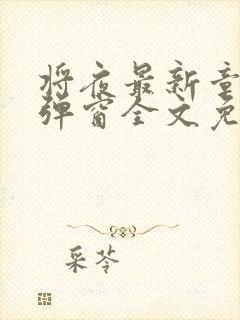 将夜最新章
弹窗全文免
采苓